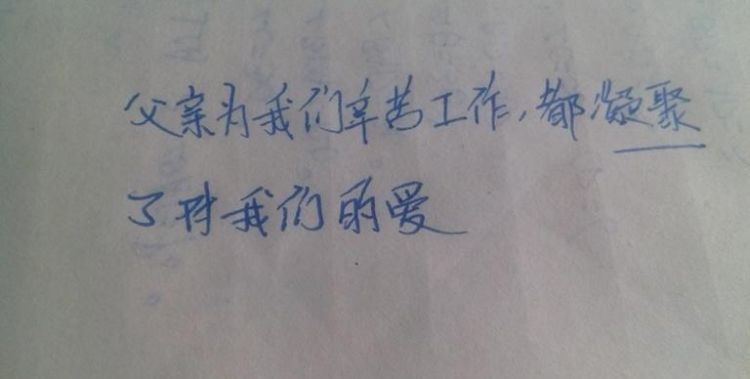 父亲为我们辛苦工作,都凝聚
了对我们的爱